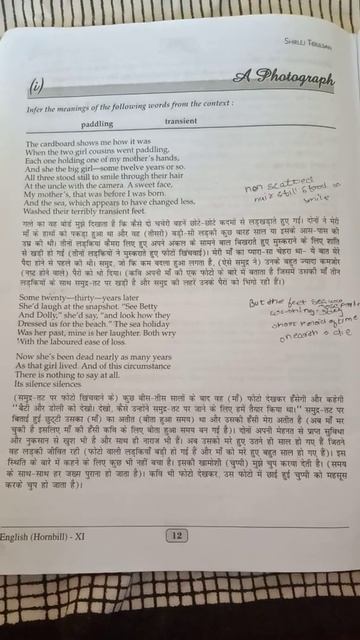 SHIRLEY TOULSON
(i)
A Photograph
Infer the meanings of the following words from the context :
paddling transient
The cardboard shows me how it was
When the two girl cousins went paddling,
Each one holding one of my mother's hands,
And she the big girl—some twelve years or so.
All three stood still to smile through their hair
At the uncle with the camera. A sweet face,
My mother's, that was before I was born.
And the sea, which appears to have changed less,
Washed their terribly transient feet.
non scattered
hair still stood to
smile
माँ के हाथों को पकड़ा हुआ था और वह (तीसरी) बड़ी-सी लड़की कुछ बारह साल या इसके आस-पास की
उम्र की थी। तीनों लड़कियाँ कैमरा लिए हुए अपने अंकल के सामने बाल बिखराते हुए मुस्कराने के लिए शांति
से खड़ी हो गई (तीनों लड़कियों ने मुस्कराते हुए फोटो खिंचवाई)। मेरी माँ का प्यारा-सा चेहरा था- ये बात मेरे
पैदा होने से पहले की थी। समुद्र, जो कि कम बदला हुआ लगता है, (ऐसे समुद्र ने) उनके बहुत ज्यादा कमजोर
(नष्ट होने वाले) पैरों को धो दिया। (कवि अपनी माँ की एक फोटो के बारे में बताता है जिसमें उसकी माँ तीन
लड़कियों के साथ समुद्र-तट पर खड़ी है और समुद्र की लहरें उनके पैरों को भिगो रही हैं।)
Some twenty—thirty—years later
She'd laugh at the snapshot. "See Betty
And Dolly," she'd say, "and look how they
Dressed us for the beach." The sea holiday
Was her past, mine is her laughter. Both wry
With the laboured ease of loss.
But the feet
short period of time
on earth
Now she's been dead nearly as many years
As that girl lived. And of this circumstance
There is nothing to say at all.
Its silence silences
(समुद्र-तट पर फोटो खिंचवाने के) कुछ बीस-तीस सालों के बाद वह (माँ) फोटो देखकर हँसेगी और कहेगी
"बैटी और डोली को देखो। देखो, कैसे उन्होंने समुद्र-तट पर जाने के लिए हमें तैयार किया था।" समुद्र-तट पर
बिताई हुई छुट्टी उसका (माँ) का अतीत (बीता हुआ समय) था और उसकी हँसी मेरा अतीत है (अब माँ मर
चुकी है इसलिए माँ की हँसी कवि के लिए बीता हुआ समय बन गई है)। दोनों अपनी मेहनत से प्राप्त सुविधा
और नुकसान से खुश भी है और साथ ही नाराज भी हैं। अब उसको मरे हुए उतने ही साल हो गए हैं जितने
वह लड़की जीवित रही (फोटो वाली लड़कियाँ बड़ी हो गई हैं और माँ को मरे हुए बहुत साल हो गए हैं)। इस
स्थिति के बारे में कहने के लिए कुछ भी नहीं बचा है। इसकी खामोशी (चुप्पी) मुझे चुप करवा देती है। (समय
के साथ-साथ हर जख्म पुराना हो जाता है)। कवि भी फोटो देखकर, उस फोटो में छाई हुई चुप्पी को महसूस
करके चुप हो जाता है।)
English (Hornbill) - XI
12